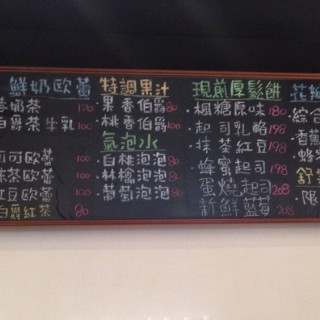 鮮奶歐蕾
奶茶 120
伯爵茶牛乳 100
可可歐蕾 100
抹茶歐蕾 100
紅豆歐蕾 100
伯爵紅茶 80
特調果汁
果香伯爵 80
桃香伯爵 80
氣泡水
白桃泡泡 80
林檎泡泡 80
葡萄泡泡 80
現煎厚鬆餅
楓糖原味 180
起司乳酪 198
抹茶紅豆 198
蜂蜜起司 198
蛋燒起司 208
新鮮藍莓 208
花
綜合
香蕉
蜂
舒
限